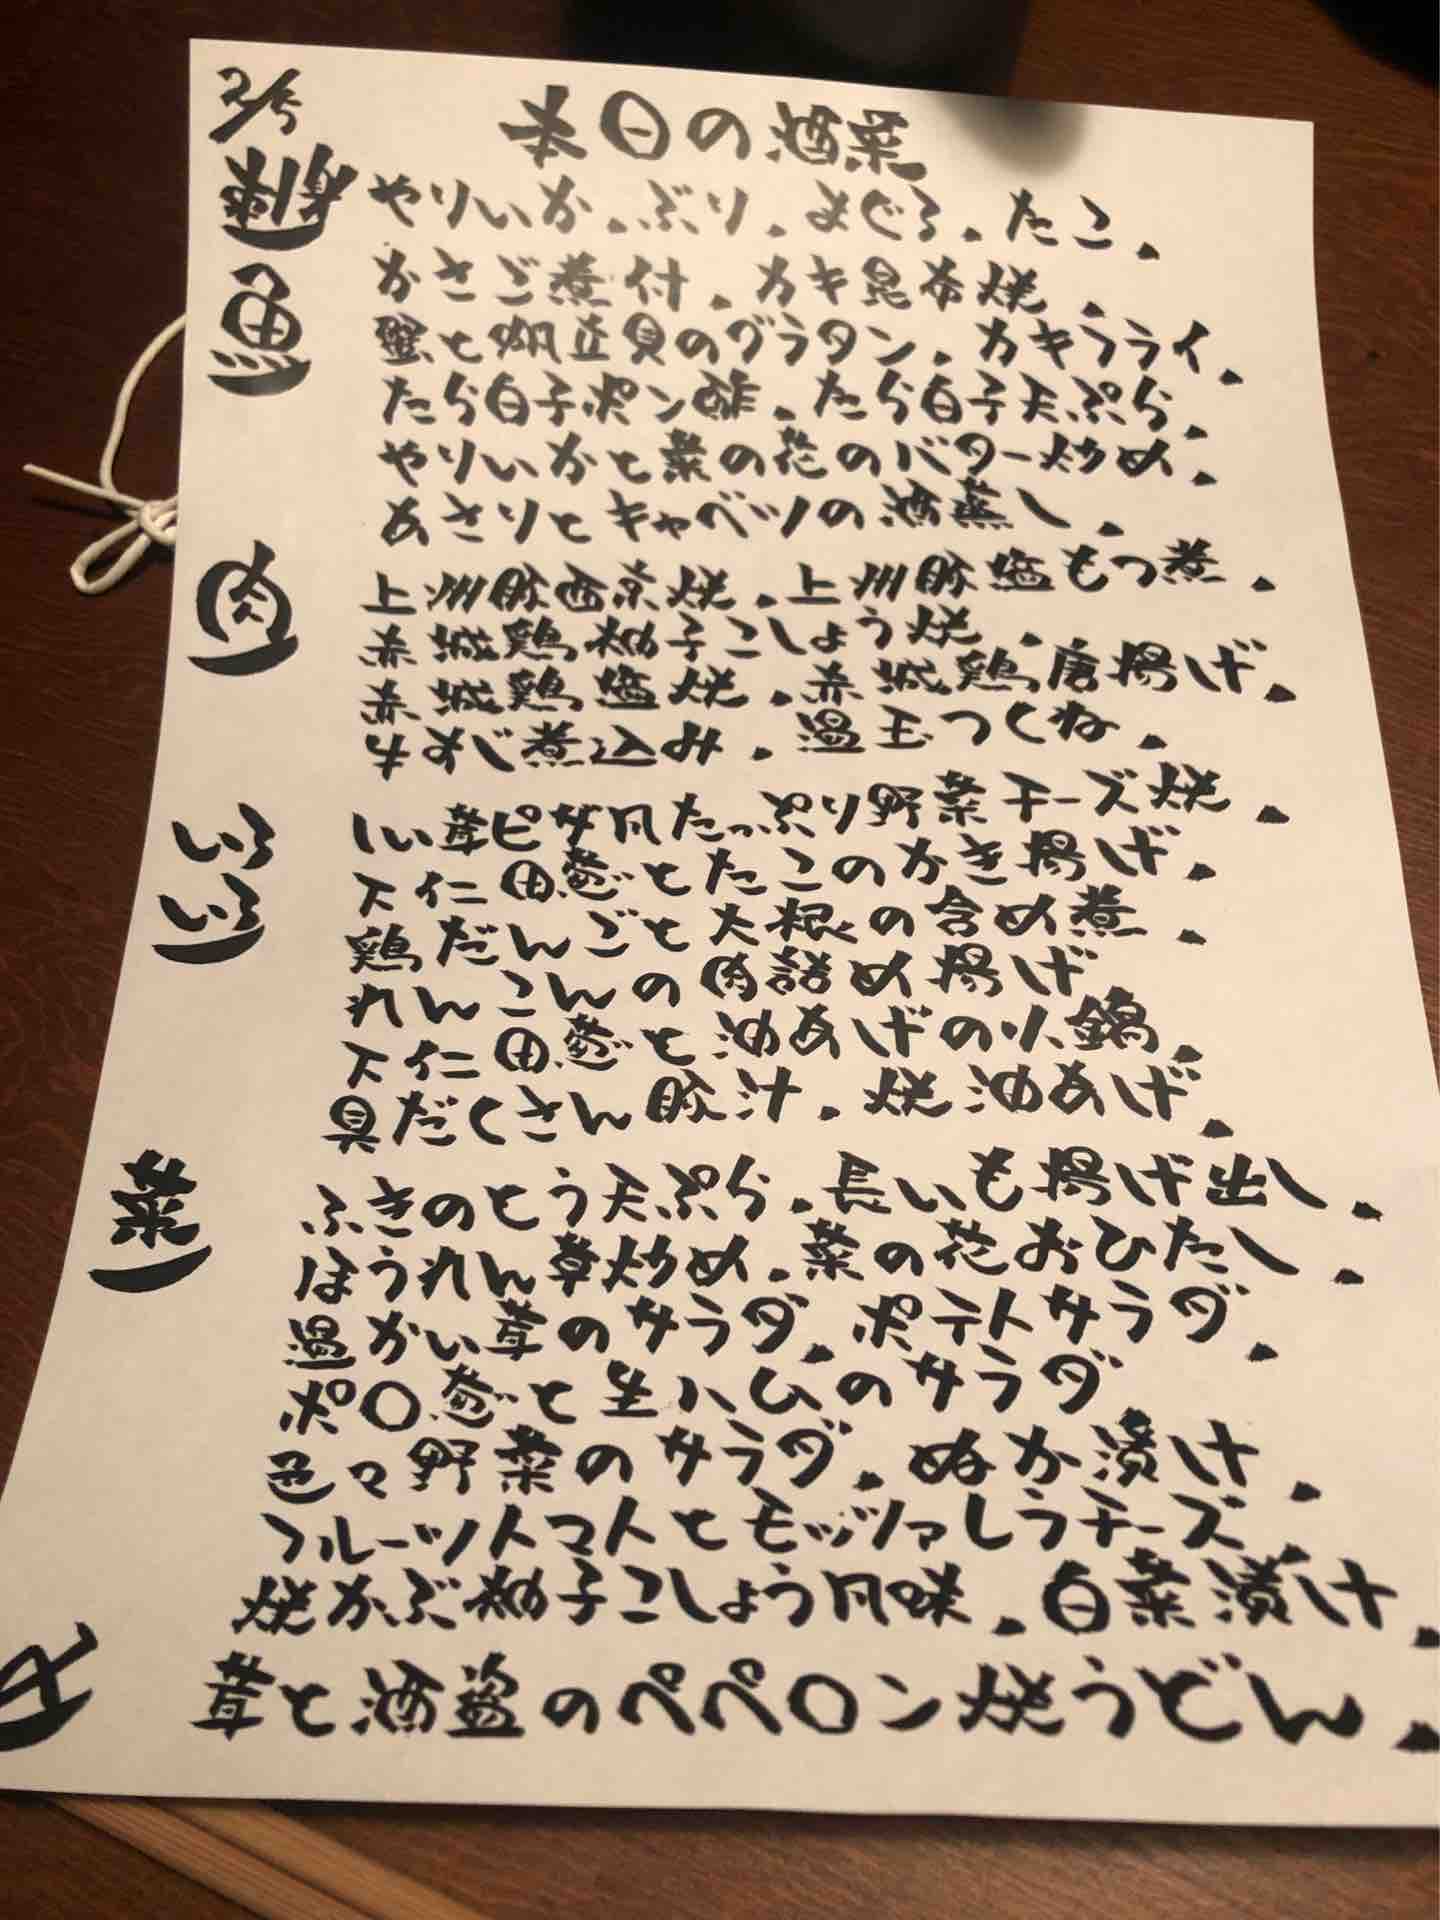 2/5
本日の酒菜
刺身 やりいか.ぶり.まぐろ.たこ.
魚 かさご煮付.カキ昆布焼.
蟹と帆立貝のグラタン.カキフライ.
たら白子ポン酢.たら白子天ぷら.
やりいかと菜の花のバター炒め.
あさりとキャベツの酒蒸し.
肉 上州豚西京焼.上州豚塩もつ煮.
赤城鶏柚子こしょう焼.
赤城鶏塩焼.赤城鶏唐揚げ.
牛すじ煮込み.温玉つくね.
いろいろ しい茸ピザ風たっぷり野菜チーズ焼.
下仁田葱とたこのかき揚げ.
鶏だんごと大根の含め煮.
れんこんの肉詰め揚げ
下仁田葱と油あげの小鍋.
具だくさん豚汁.焼油あげ.
菜 ふきのとう天ぷら.長いも揚げ出し.
ほうれん草炒め.菜の花おひたし.
温かい茸のサラダ.ポテトサラダ.
ポロ葱と生ハムのサラダ
色々野菜のサラダ.ぬか漬け.
フルーツトマトとモッツァレラチーズ.
焼かぶ柚子こしょう風味.白菜漬け.
茸と酒盗のペペロン焼うどん.